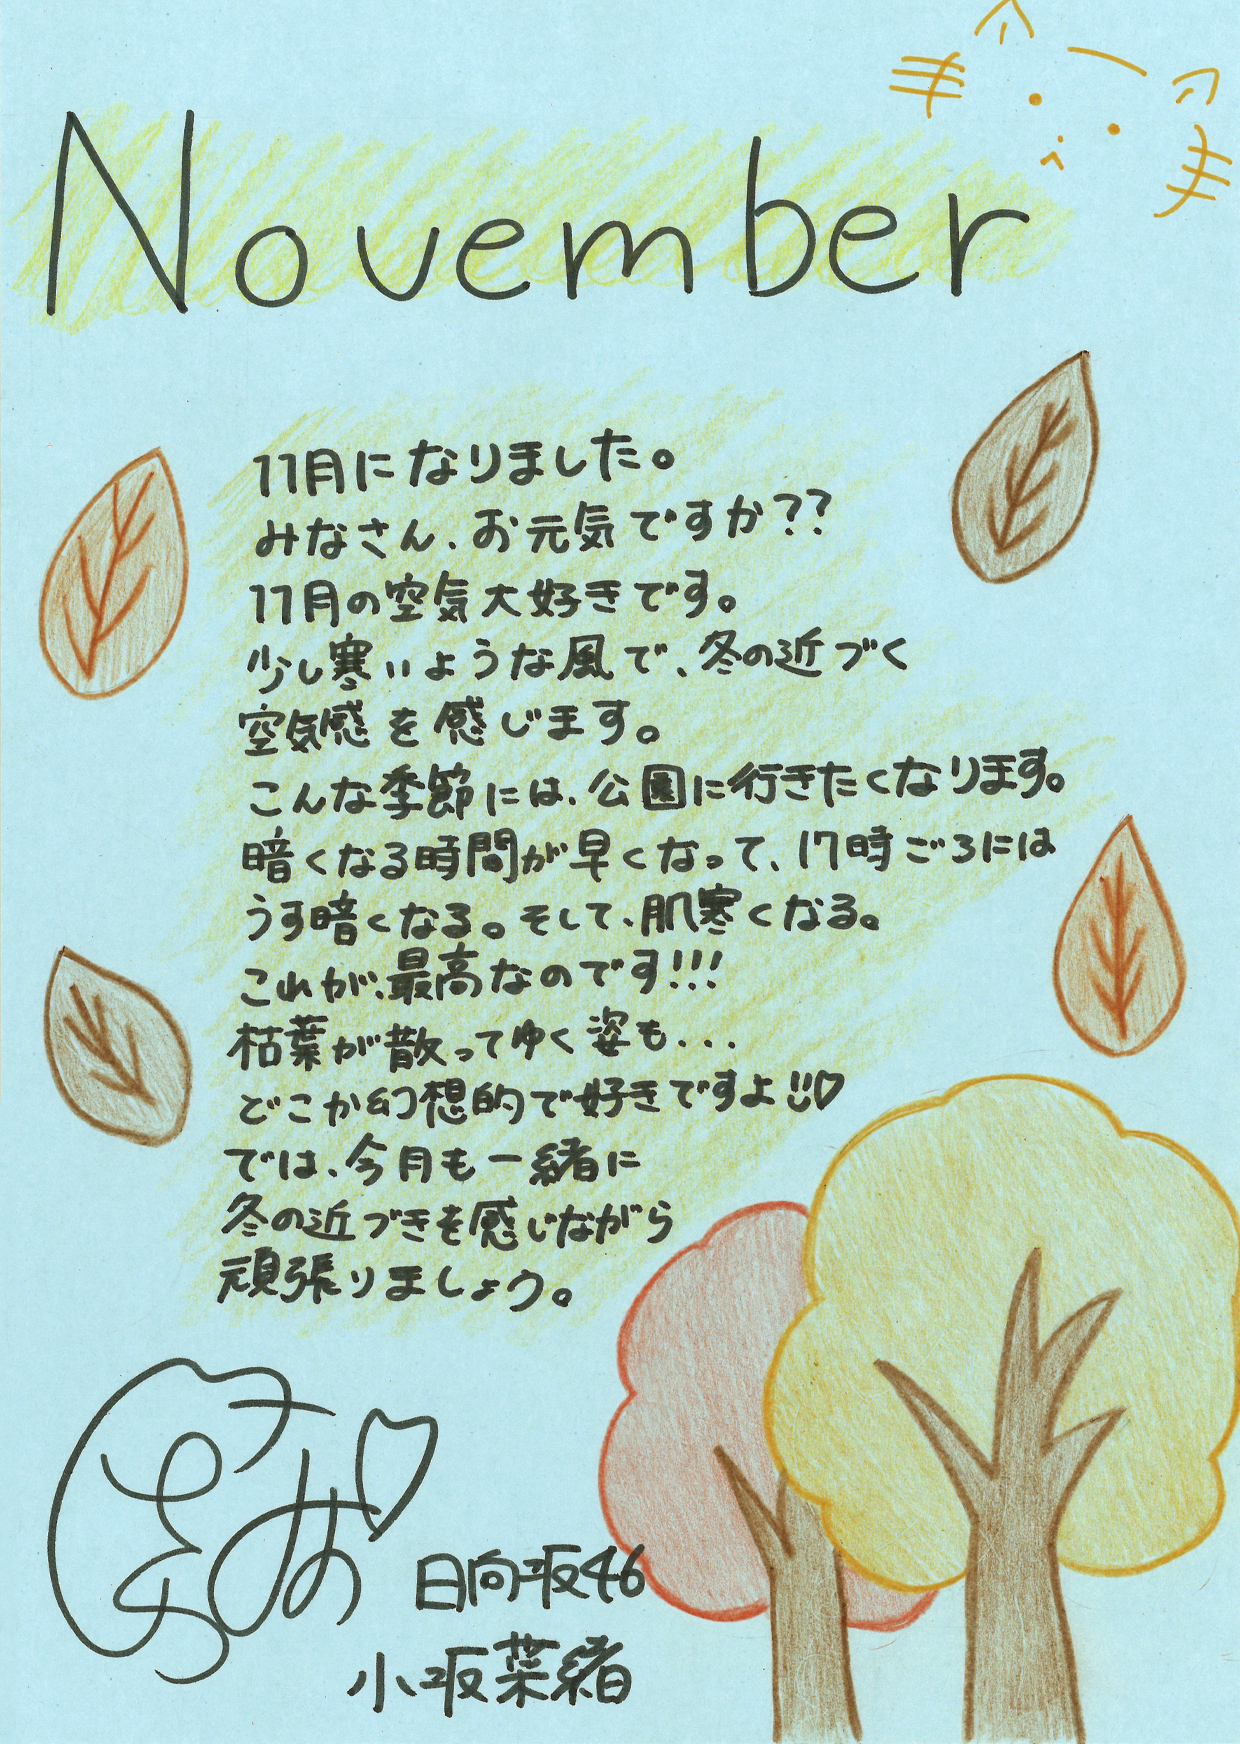 November
11月になりました。
みなさん、お元気ですか??
11月の空気大好きです。
少し寒いような風で、冬の近づく
空気感を感じます。
こんな季節には、公園に行きたくなります。
暗くなる時間が早くなって、17時ごろには
うす暗くなる。そして、肌寒くなる。
これが、最高なのです!!!
枯葉が散ってゆく姿も...
どこか幻想的で好きですよ!!♡
では、今月も一緒に
冬の近づきを感じながら
頑張りましょう。
日向坂46
小坂菜緒